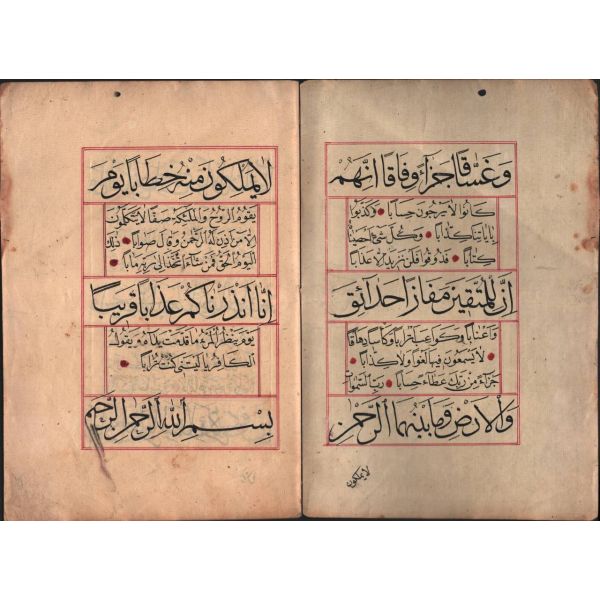 وَغَسَّاقًا جَزَآءً وِفَاقًا اِنَّهُمْ
كَانُوا لَا يَرْجُونَ حِسَابًا وَكَذَّبُوا
بِاٰيَاتِنَا كِذَّابًا وَكُلَّ شَيْءٍ اَحْصَيْنَاهُ
كِتَابًا فَذُوقُوا فَلَنْ نَزِيدَكُمْ اِلَّا عَذَابًا
اِنَّ لِلْمُتَّقِينَ مَفَازًا حَدَآئِقَ
وَاَعْنَابًا وَكَوَاعِبَ اَتْرَابًا وَكَاْسًا دِهَاقًا
لَا يَسْمَعُونَ فِيهَا لَغْوًا وَلَا كِذَّابًا
جَزَآءً مِنْ رَبِّكَ عَطَآءً حِسَابًا رَبِّ السَّمٰوَاتِ
وَالْاَرْضِ وَمَا بَيْنَهُمَا الرَّحْمٰنِ
لا يملكون
لَا يَمْلِكُونَ مِنْهُ خِطَابًا يَوْمَ
يَقُومُ الرُّوحُ وَالْمَلٰٓئِكَةُ صَفًّا لَا يَتَكَلَّمُونَ
اِلَّا مَنْ اَذِنَ لَهُ الرَّحْمٰنُ وَقَالَ صَوَابًا ذٰلِكَ
الْيَوْمُ الْحَقُّ فَمَنْ شَآءَ اتَّخَذَ اِلٰى رَبِّهِ مَاٰبًا
اِنَّا اَنْذَرْنَاكُمْ عَذَابًا قَرِيبًا
يَوْمَ يَنْظُرُ الْمَرْءُ مَا قَدَّمَتْ يَدَاهُ وَيَقُولُ
الْكَافِرُ يَا لَيْتَنِي كُنْتُ تُرَابًا
بِسْمِ اللّٰهِ الرَّحْمٰنِ الرَّحِيمِ